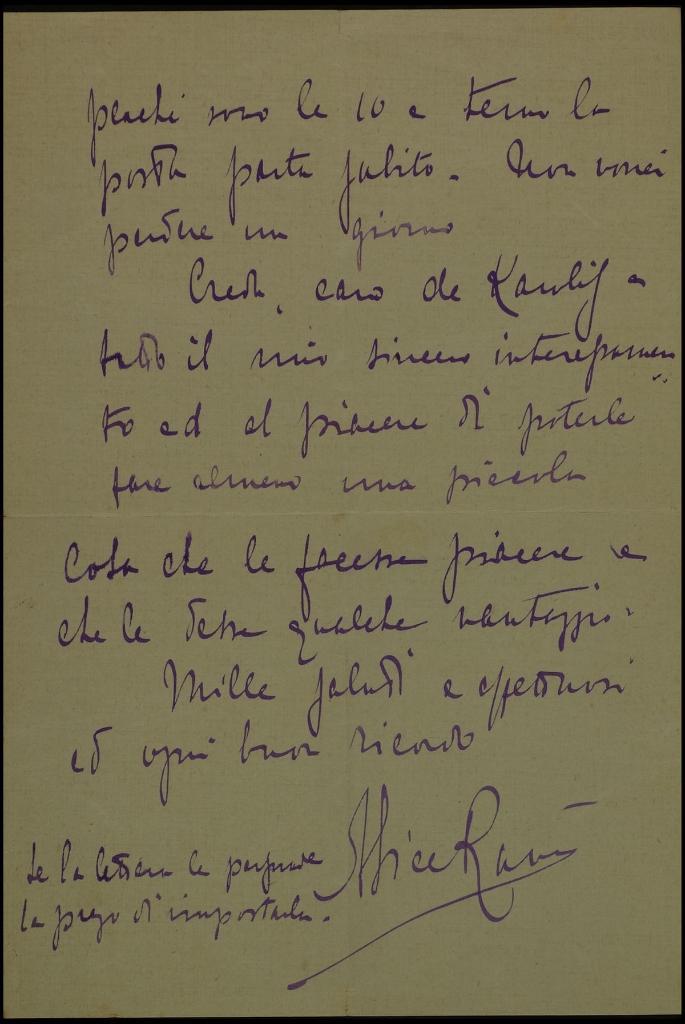 perchè sono le 10 e temo la
posta parta subito. Non vorrei
perdere un giorno
Creda, caro de Karolis a
tutto il mio sincero interessamen
to ed al piacere di poterle
fare almeno una piccola
cosa che le facesse piacere e
che le desse qualche vantaggio.
Mille saluti e affettuosi
ed ogni buon ricordo
Se la lettera le persuade
la prego di impostarla.